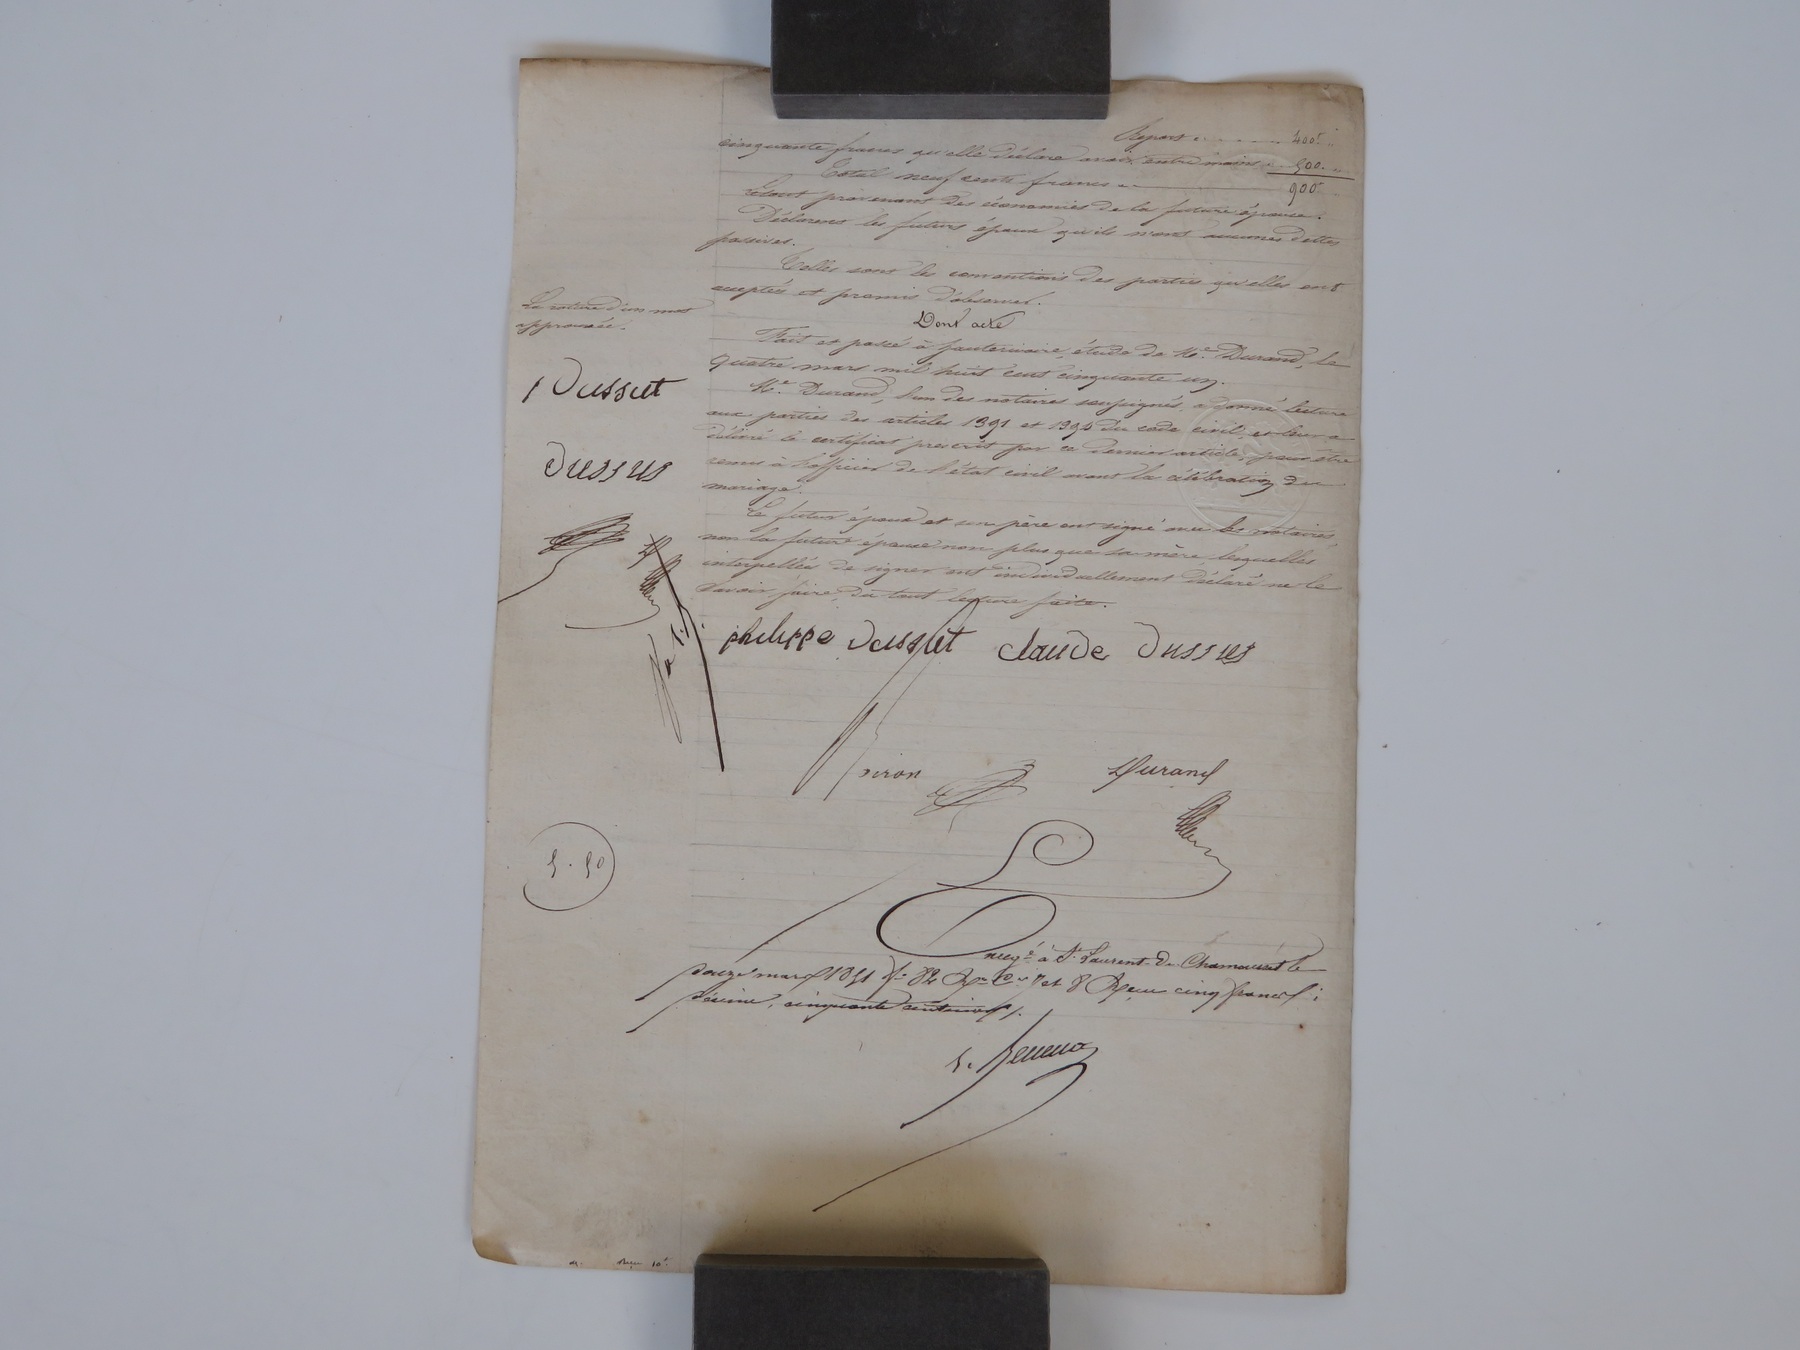 Report . . . . . . 400f
cinquante francs qu'elle déclare avoir entre mains . . 500
Total neuf cents francs 900f
Le tout provenant des économies de la future épouse.
Déclarent les futurs époux qu'ils n'ont aucunes dettes
passives.
Telles sont les conventions des parties qu'elles ont
acceptées et promis d'observer.
Dont acte
Fait et passé à étude de Me. Durand, le
quatre mars mil huit cent cinquante un.
Me. Durand, l'un des notaires soussignés, a donné lecture
aux parties des articles 1391 et 1394 du code civil, et leur a
délivré le certificat prescrit par ce dernier article, pour être
remis à l'officier de l'état civil avant la célébration du
mariage.
Le futur époux et son père ont signé avec les notaires,
non la future épouse non plus que sa mère lesquelles
interpellées de signer ont individuellement déclaré ne le
savoir faire, du tout lecture faite.
La rature d'un mot
approuvée.
Dussut
Dussus
philippe Dussut claude Dussus
Durand
5.50
à St Laurent de Chamousset le
douze mars 1851 fo 82 Ro Co 7 et 8 Reçu cinq francs ;
décime, cinquante centimes.